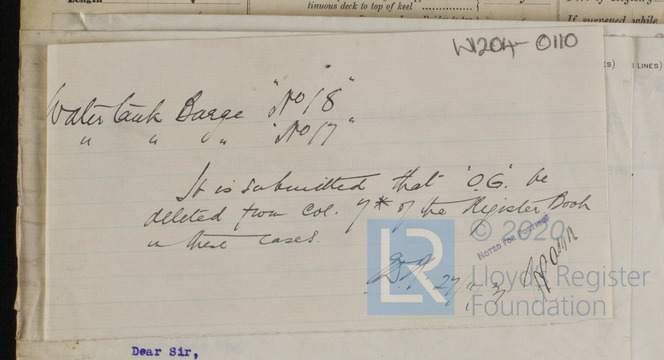 Length
tinuous deck to top of keel
If surveyed while
W204-0110
LINES)
Water tank Barge "No 18"
" " " "No 17"
It is submitted that 'O.G.' be
deleted from Col. 7* of the Register Book
in these cases.
© 2020
NOTED FOR POSTING
LR
Lloyd's Register
Foundation
Dear Sir,